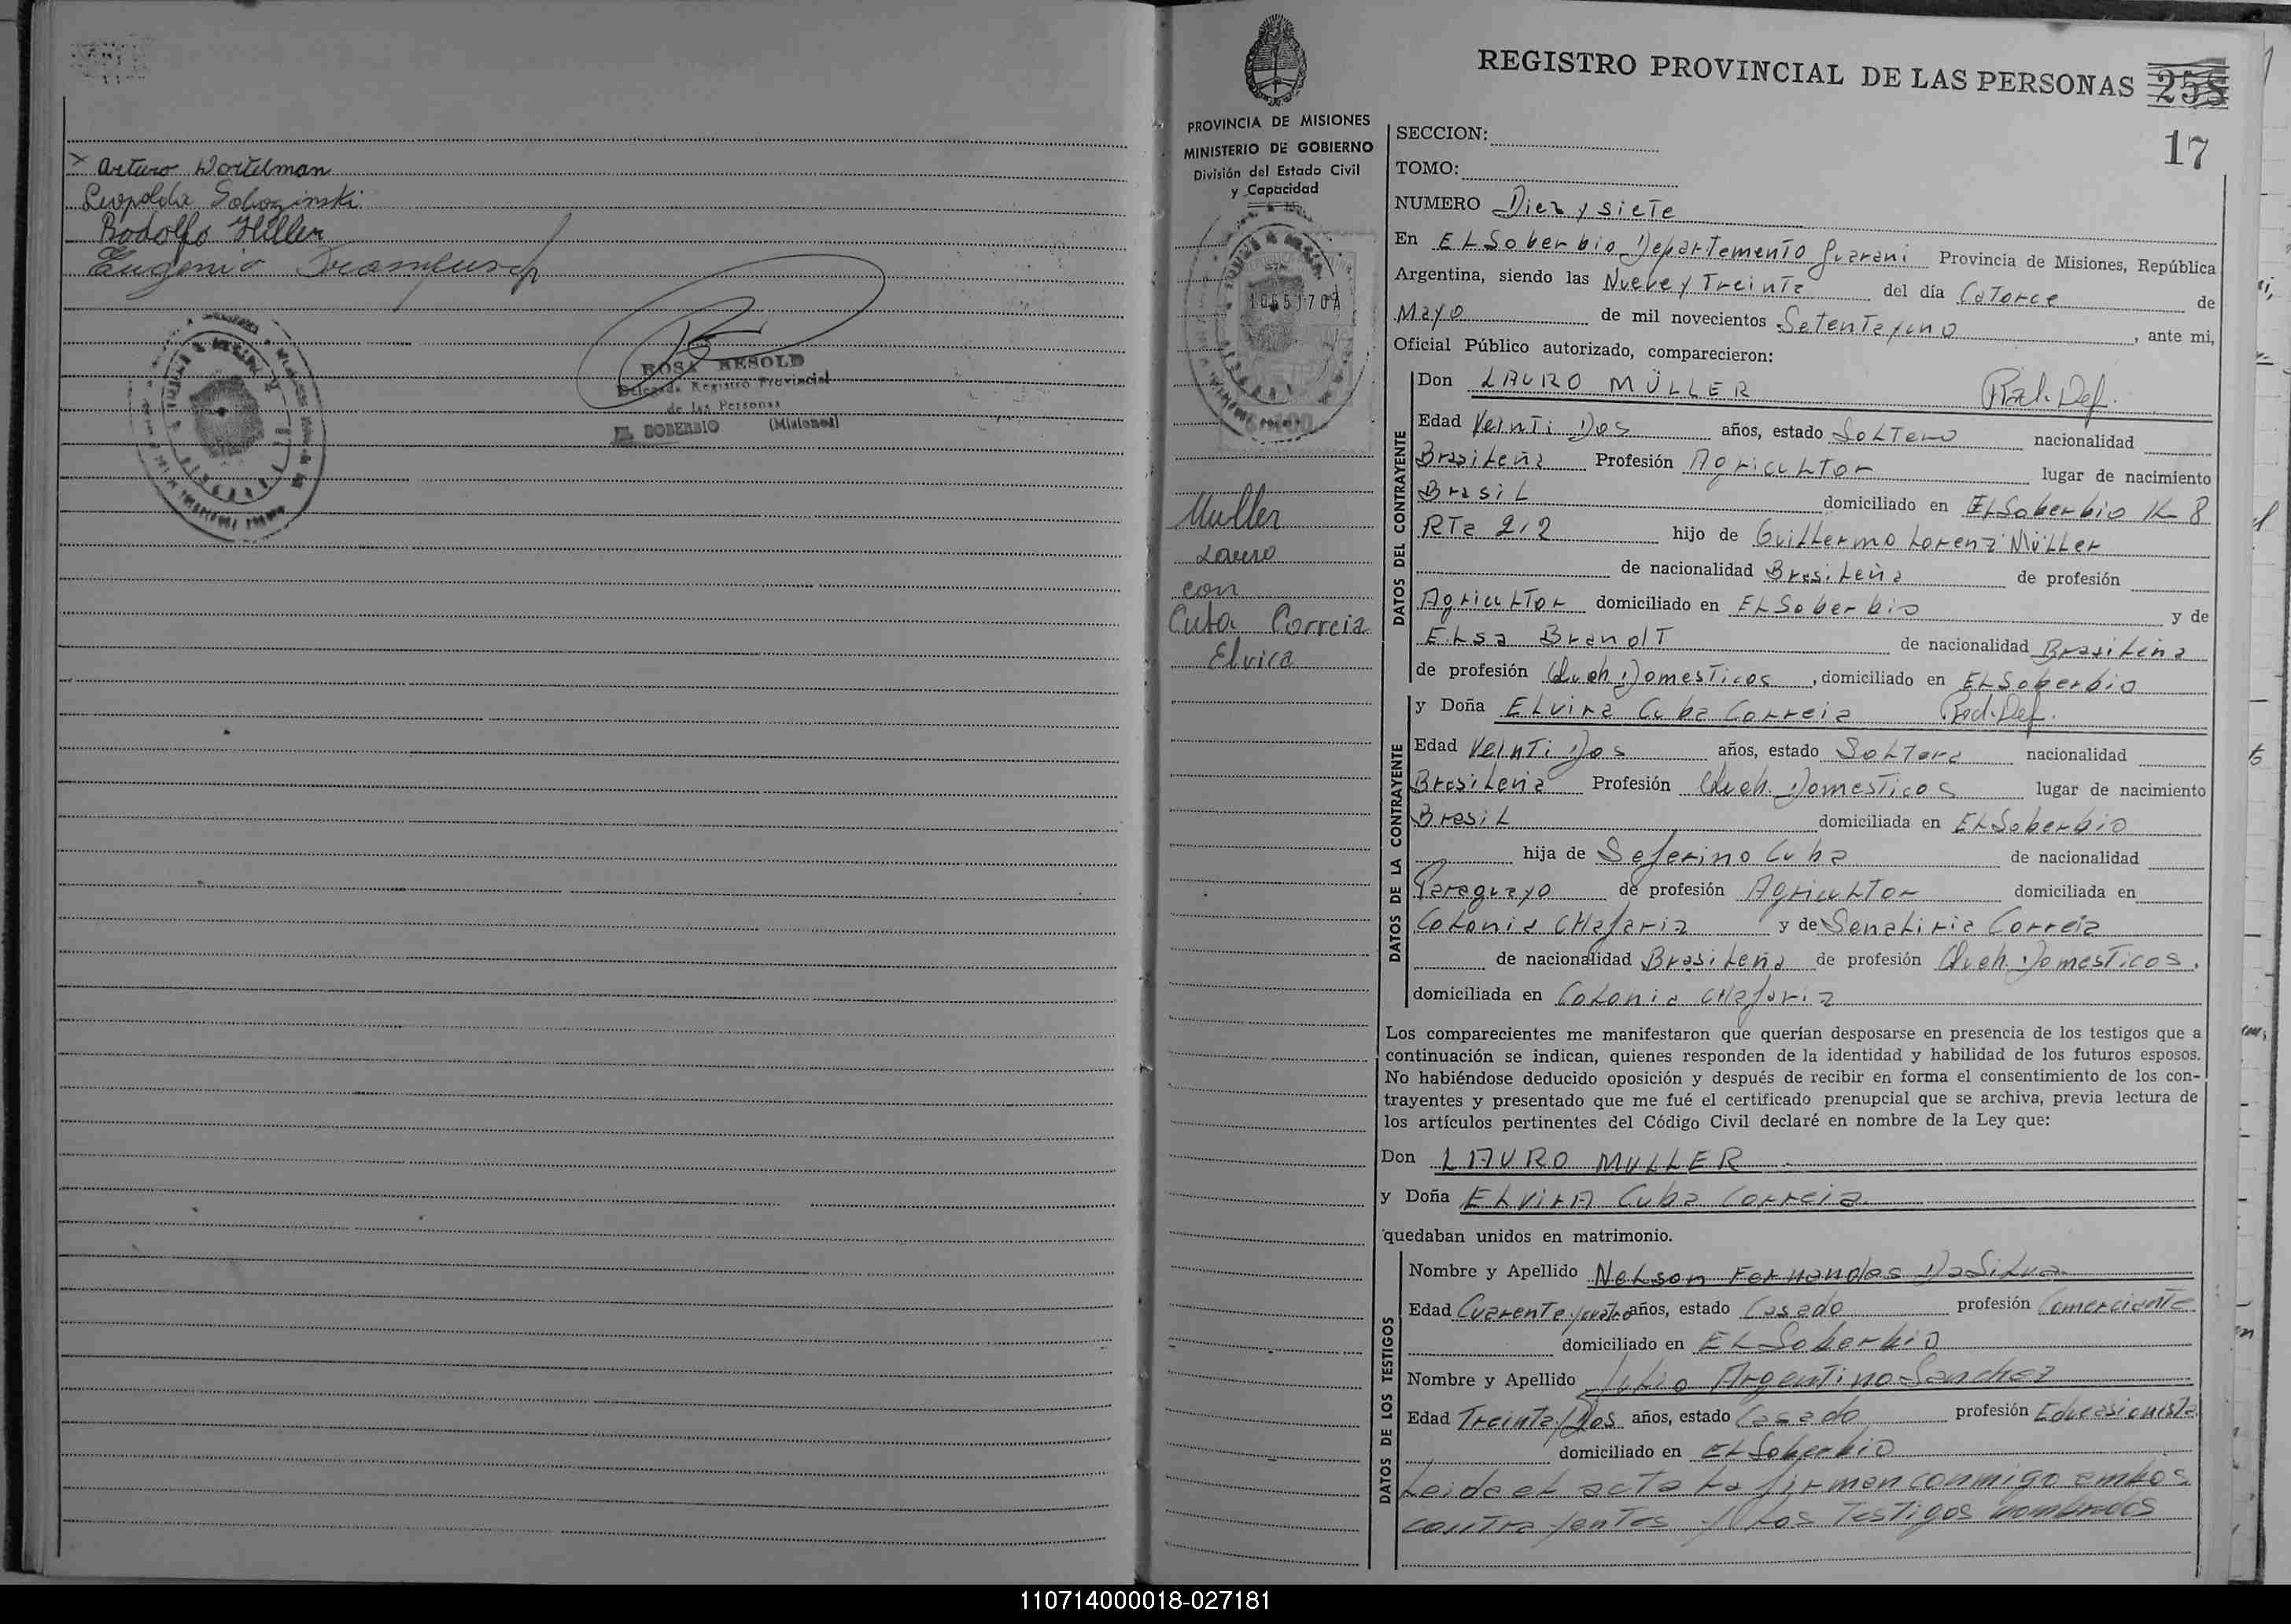 x Arturo Wortelman
Leopoldo Sobczinski
Rodolfo Hiller
Eugenio
ROSA RESOLD
Delegada Registro Provincial
de las Personas
EL SOBERBIO (Misiones)
REGISTRO PROVINCIAL DE LAS PERSONAS 258
17
PROVINCIA DE MISIONES
MINISTERIO DE GOBIERNO
División del Estado Civil
y Capacidad
Muller
Lauro
con
Cuba Correia
Elvira
SECCION:
TOMO:
NUMERO Diez y siete
En EL Soberbio Departemento Guarani Provincia de Misiones, República
Argentina, siendo las Nueve y Treinta del día Catorce de
Mayo de mil novecientos Setenta y uno, ante mi,
Oficial Público autorizado, comparecieron:
DATOS DEL CONTRAYENTE
Don LAURO MÜLLER Rad. Def.
Edad Veinti Dos años, estado Soltero nacionalidad
Brasileña Profesión Agricultor lugar de nacimiento
Brasil domiciliado en El Soberbio K 8
RTa 212 hijo de Guillermo Lorenz Müller
de nacionalidad Brasileña de profesión
Agricultor domiciliado en El Soberbio y de
Elsa Brandt de nacionalidad Brasileña
de profesión Queh. Domesticos, domiciliado en El Soberbio
DATOS DE LA CONTRAYENTE
y Doña Elvira Cuba Correia Rad. Def.
Edad Veinti Dos años, estado Soltera nacionalidad
Brasileña Profesión Queh. Domesticos lugar de nacimiento
Brasil domiciliada en El Soberbio
hija de Seferino Cuba de nacionalidad
Paraguayo de profesión Agricultor domiciliada en
Colonia CHafariz y de Senaliria Correia
de nacionalidad Brasileña de profesión Queh. Domesticos.
domiciliada en Colonia CHafariz
Los comparecientes me manifestaron que querían desposarse en presencia de los testigos que a
continuación se indican, quienes responden de la identidad y habilidad de los futuros esposos.
No habiéndose deducido oposición y después de recibir en forma el consentimiento de los con-
trayentes y presentado que me fué el certificado prenupcial que se archiva, previa lectura de
los artículos pertinentes del Código Civil declaré en nombre de la Ley que:
Don LAURO MULLER
y Doña ELVIRA Cuba Correia
quedaban unidos en matrimonio.
DATOS DE LOS TESTIGOS
Nombre y Apellido Nelson Fernandes Da Silva
Edad Cuarenta y cuatro años, estado Casado profesión Comerciante
domiciliado en El Soberbio
Nombre y Apellido Julio Argentino Sanchez
Edad Treinta y Dos años, estado Casado profesión Educasionista
domiciliado en El Soberbio
Leida el acta La firman conmigo ambos
contrayentes y Los Testigos nombrados
110714000018-027181